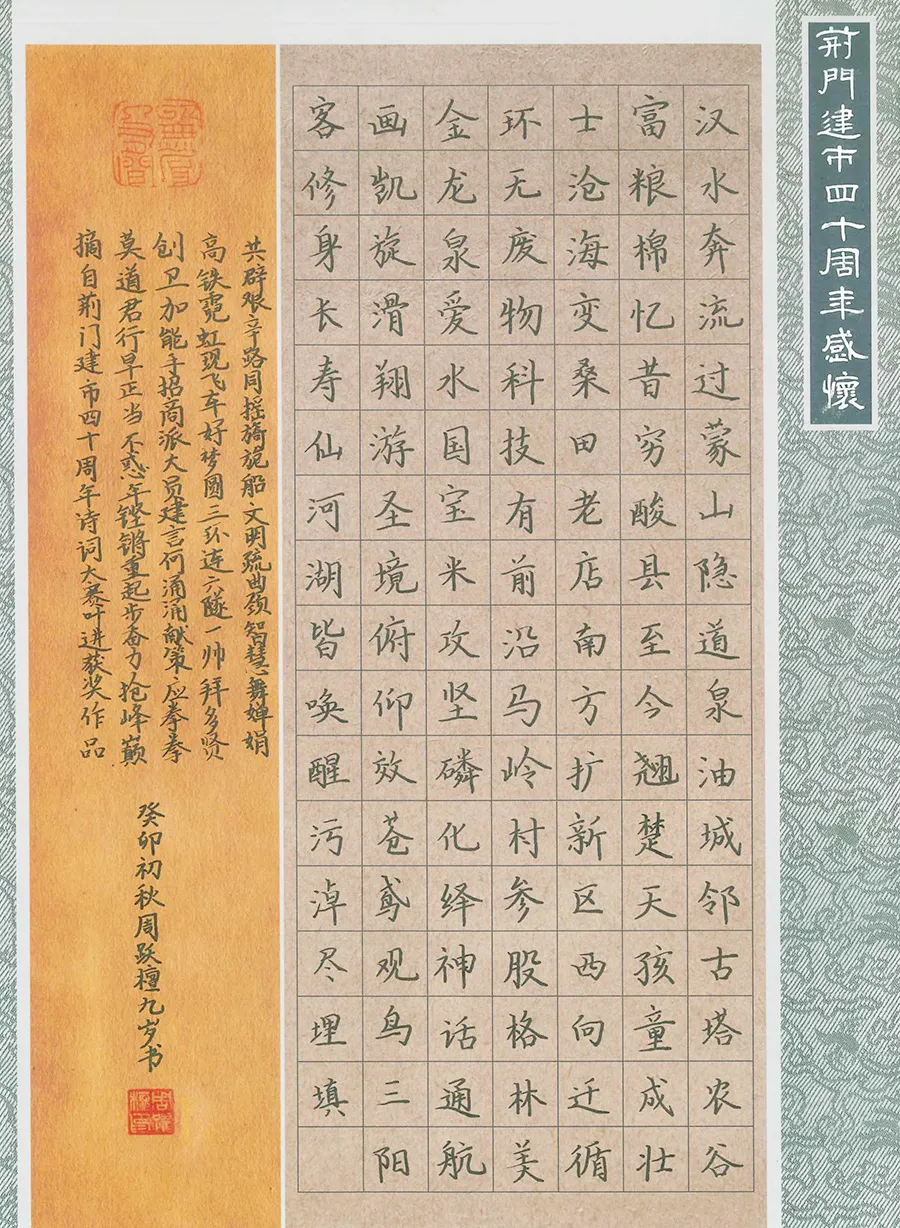 荆門建市四十周年感懷
汉水奔流过蒙山隐道泉油城邻古塔农谷
富粮棉忆昔穷酸县至今翘楚天孩童成壮
士沧海变桑田老店南方扩新区西向迁循
环无废物科技有前沿马岭村参股格林美
金龙泉爱水国宝米攻坚磷化绎神话通航
画凯旋滑翔游圣境俯仰效苍鸢观鸟三阳
客修身长寿仙河湖皆唤醒污淖尽埋填
共辟艰辛路同摇旖旎船文明疏曲颈智慧舞婵娟
高铁霓虹现飞车好梦圆三环连六隧一帅拜多贤
创卫加能手招商派大员建言何涌涌献策应拳拳
莫道君行早正当不惑年铿锵重起步奋力抢峰巅
摘自荆门建市四十周年诗词大赛叶进获奖作品
癸卯初秋周跃檀九岁书